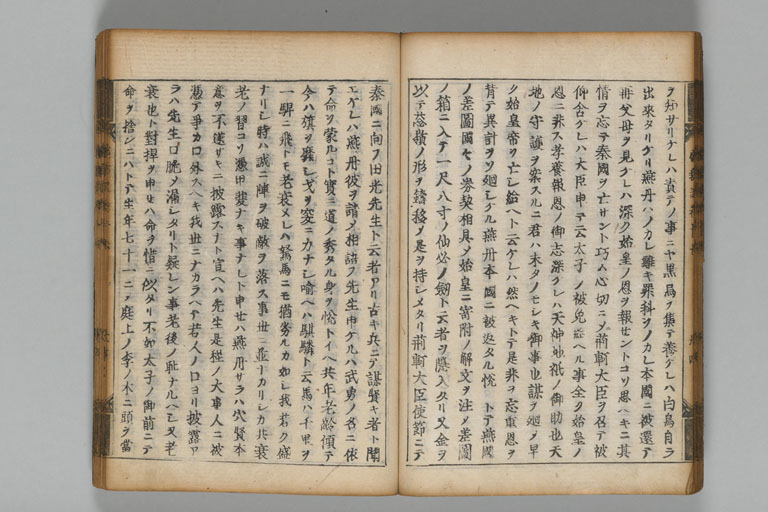 ヲ知サリケレハ責テノ事ニヤ黒烏ヲ集テ養ケレハ白烏自ラ
出來タリケリ燕丹ハノカレ難キ罪科ヲノカレ本國ニ被還テ
再父母ヲ見ケレハ深ク始皇ノ恩ヲ報セントコソ思ヘキニ其
情ヲ忘テ秦國ヲ亡サント巧ム心切ニ〆荊軻大臣ヲ召テ被
仰含ケレハ大臣申テ云太子ノ被免給ヘル事全ク始皇ノ
恩ニ非ス孝養報恩ノ御志深クレハ天神地祇ノ御助也天
地ノ守護ヲ案スルニ君ハ末タノモシキ御事也謀ヲ廻〆早
ク始皇帝ヲ亡シ給ヘト云ケレハ然ヘキトテ是非ヲ忘重恩ヲ
背テ異計ヲソ廻シケル燕丹本國ニ被返タル悦トテ燕國
ノ差圖國〃ノ券契相具〆始皇ニ寄附ノ解文ヲ注〆差圖
ノ箱ニ入テ一尺八寸ノ劔ト云者ヲ隱入タリ又金ヲ
以テ嶺ノ形ヲ鑄移〆是ヲ持シメタリ荊軻大臣使節ニテ
秦國ニ向フ田光先生ト云者アリ古キ兵ニテ謀賢キ者ト聞
エケレハ燕丹彼ヲ請〆相語フ先生申ケルハ武勇ノ名ニ依
テ命ヲ蒙ルコト實ニ道ノ秀タル身ヲ悦トイヘ共年老齡傾テ
今ハ旗ヲ戈ヲ突ニ力ナシ喩ヘハ騏驎ト云馬ハ千里ヲ
一駻ニ飛トモ老衰〆レハ駑馬ニモ猶劣ルカ如シ我若ク盛
ナリシ時ハ誠ニ陣ヲ破敵ヲ落ス事世ニ並ナカリシカ共衰
老ノ習コソ憑甲斐ナキ事ナレト申セハ燕丹サラハ穴賢本
意ヲ不遂サキニ披露スナト宣ヘハ先生是程ノ大事人ニ被
憑テ争カ口外スヘキ我世ニナカラヘテ若人ノ口ヨリ披露ア
ラハ先生口脆ノ漏シタリト疑レン事老後ノ耻ナルヘシ又老
衰也ト對捍ヲ申セハ命ヲ惜ニ似タリ不如太子ノ御前ニテ
命ヲ捨シニハトテ生年七十一ニ〆庭上ノ李ノ木ニ頭ヲ當